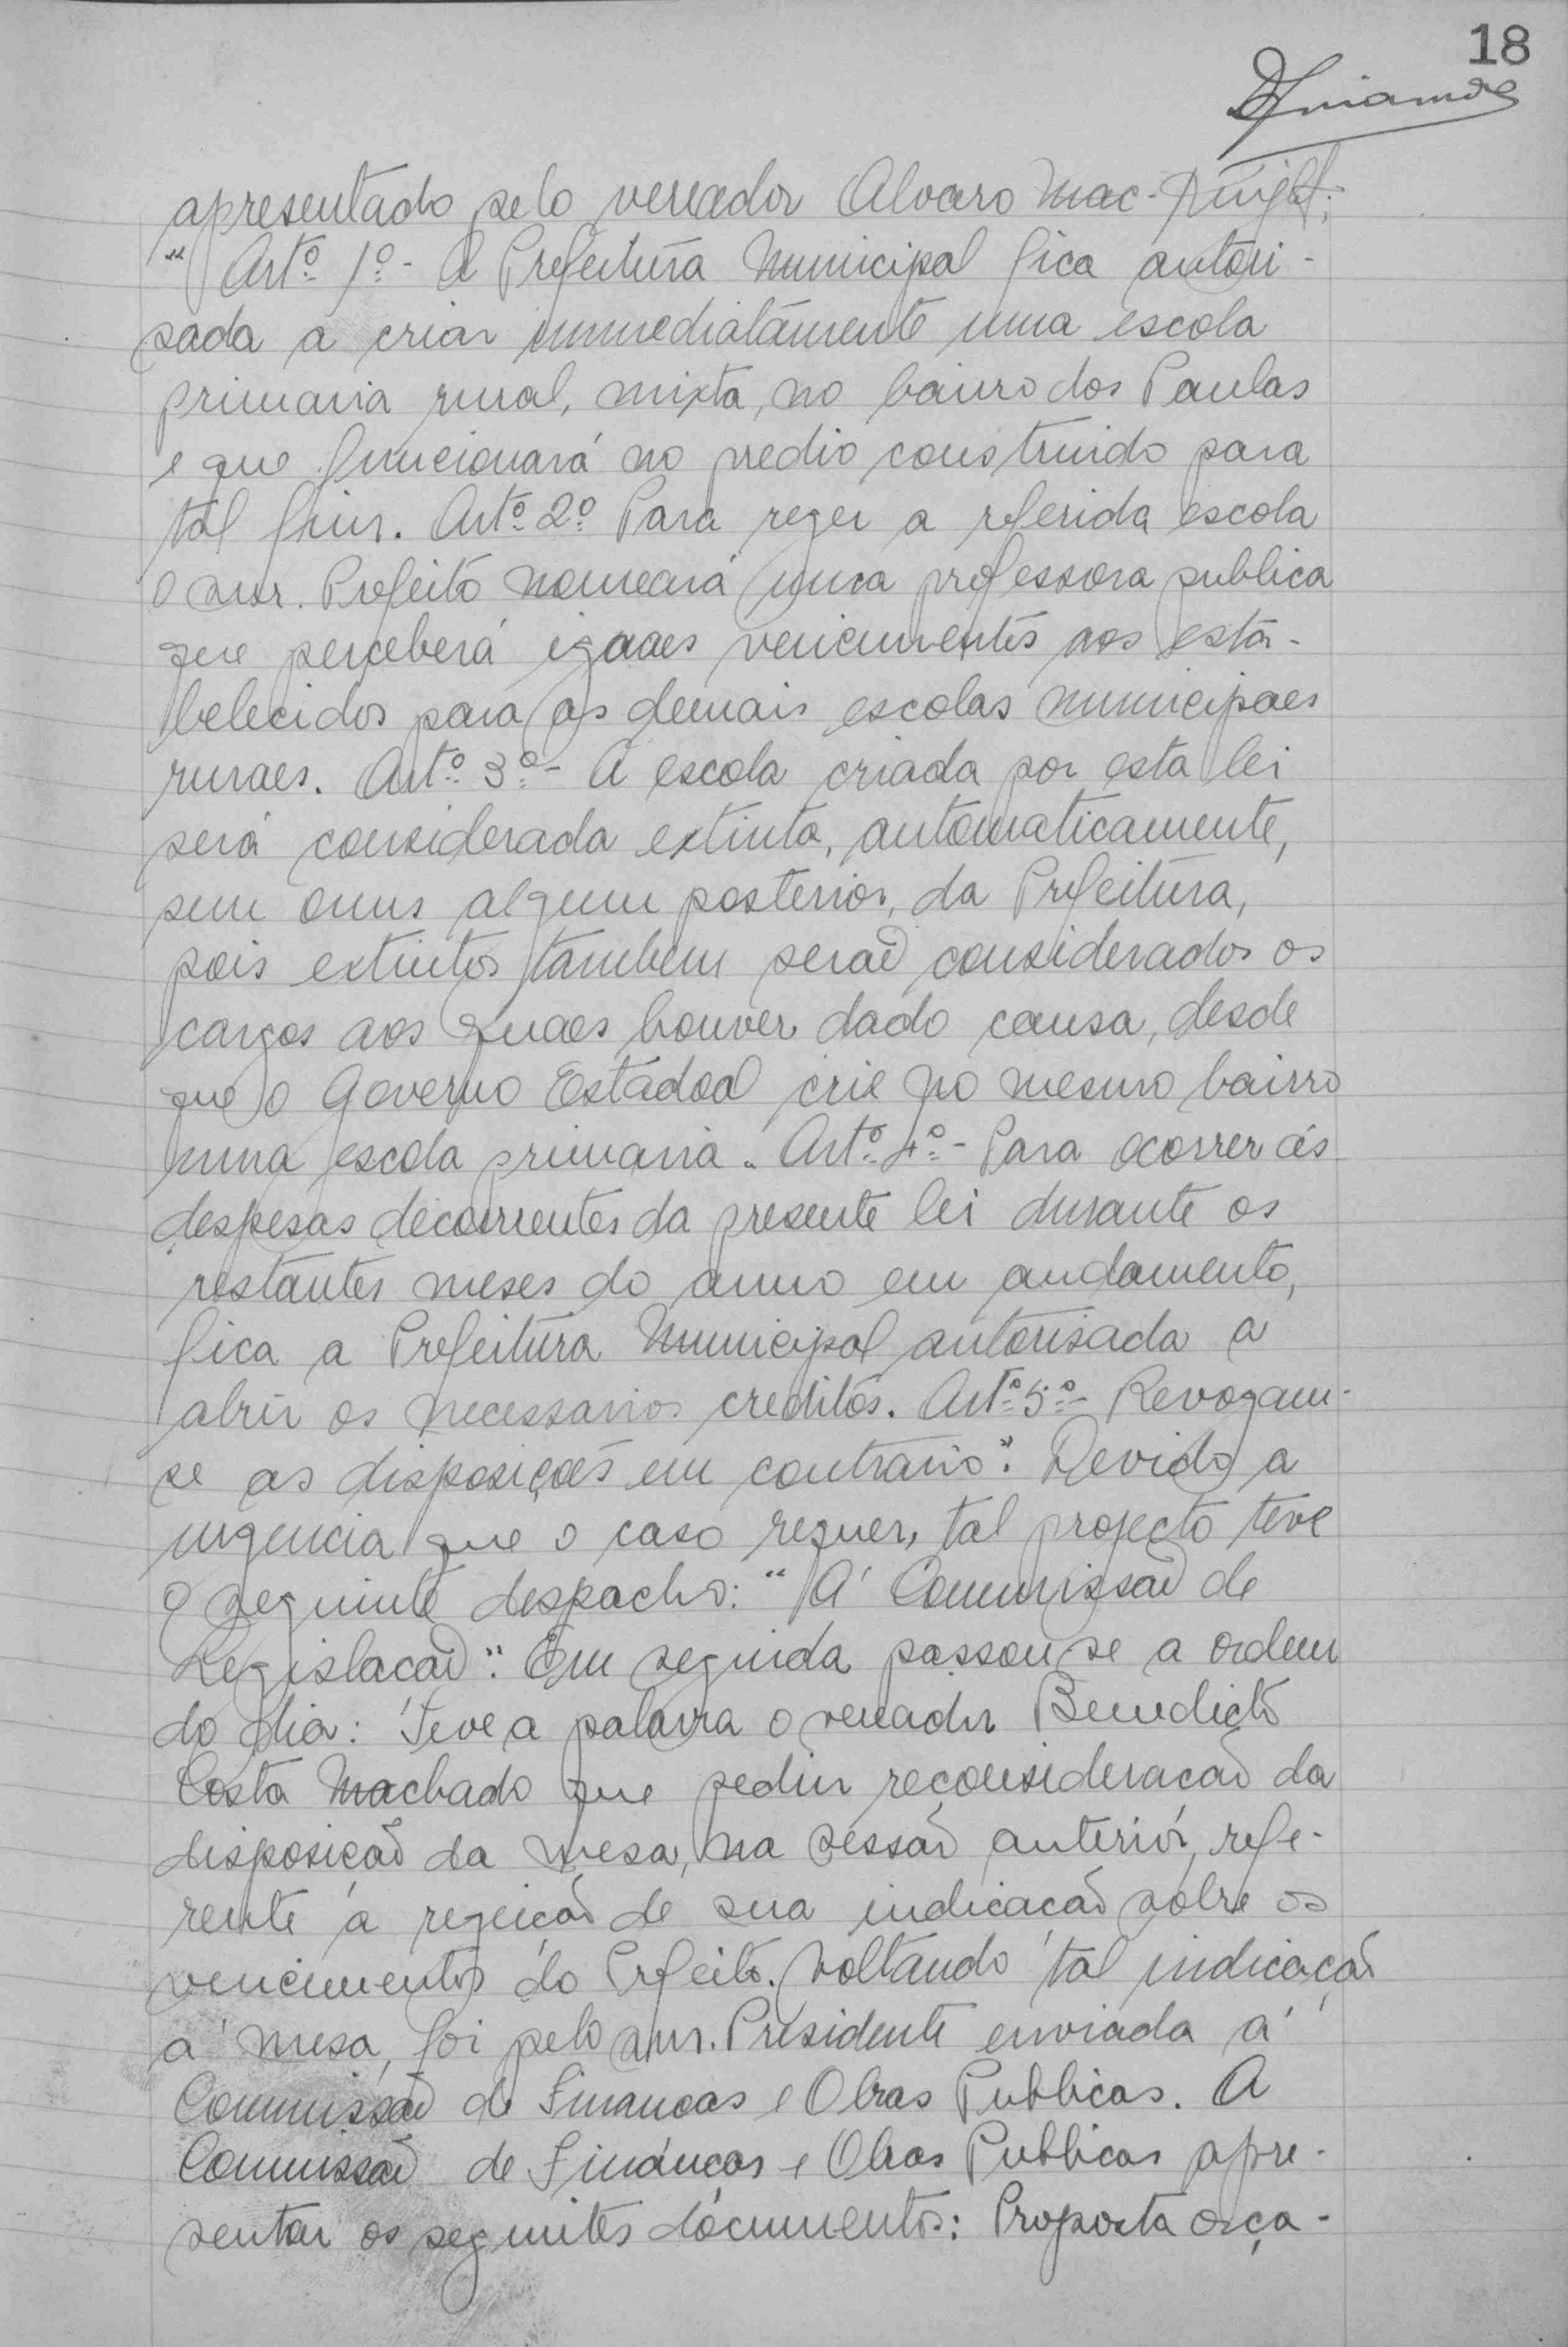 18
apresentado pelo vereador Alvaro Mac-Knight:
" Artº 1º - A Prefeitura Municipal fica autori-
sada a criar immediatamente uma escola
primaria rural, mixta, no bairro dos Paulas
e que funcionará no predio construido para
tal fim. Artº 2º Para reger a referida escola
o snr. Prefeito nomeará uma professora publica
que perceberá iguaes vencimentos aos esta-
belecidos para as demais escolas municipaes
ruraes. Artº 3º - A escola criada por esta lei
será considerada extinta, automaticamente,
sem onus algum posterior, da Prefeitura,
pois extintos tambem serão considerados os
cargos aos quaes houver dado causa, desde
que o Governo Estadoal crie no mesmo bairro
uma escola primaria. Artº 4º - Para ocorrer ás
despesas decorrentes da presente lei durante os
restantes meses do anno em andamento,
fica a Prefeitura Municipal autorisada a
abrir os necessarios creditos. Artº 5º - Revogam-
se as disposições em contrario". Devido a
urgencia que o caso requer, tal projecto teve
o seguinte despacho: "Á Commissão de
Legislacão". Em seguida passou-se a ordem
do dia: Teve a palavra o vereador Benedicto
Costa Machado que pediu reconsideracão da
disposição da mesa, na sessão anterior, refe-
rente á regeição de sua indicacão sobre os
vencimentos do Prefeito. Voltando tal indicação
á mesa, foi pelo snr. Presidente enviada á
Commissão de Financas e Obras Publicas. A
Commissão de Finanças e Obras Publicas apre-
sentou os seguintes documentos: Proposta orça-